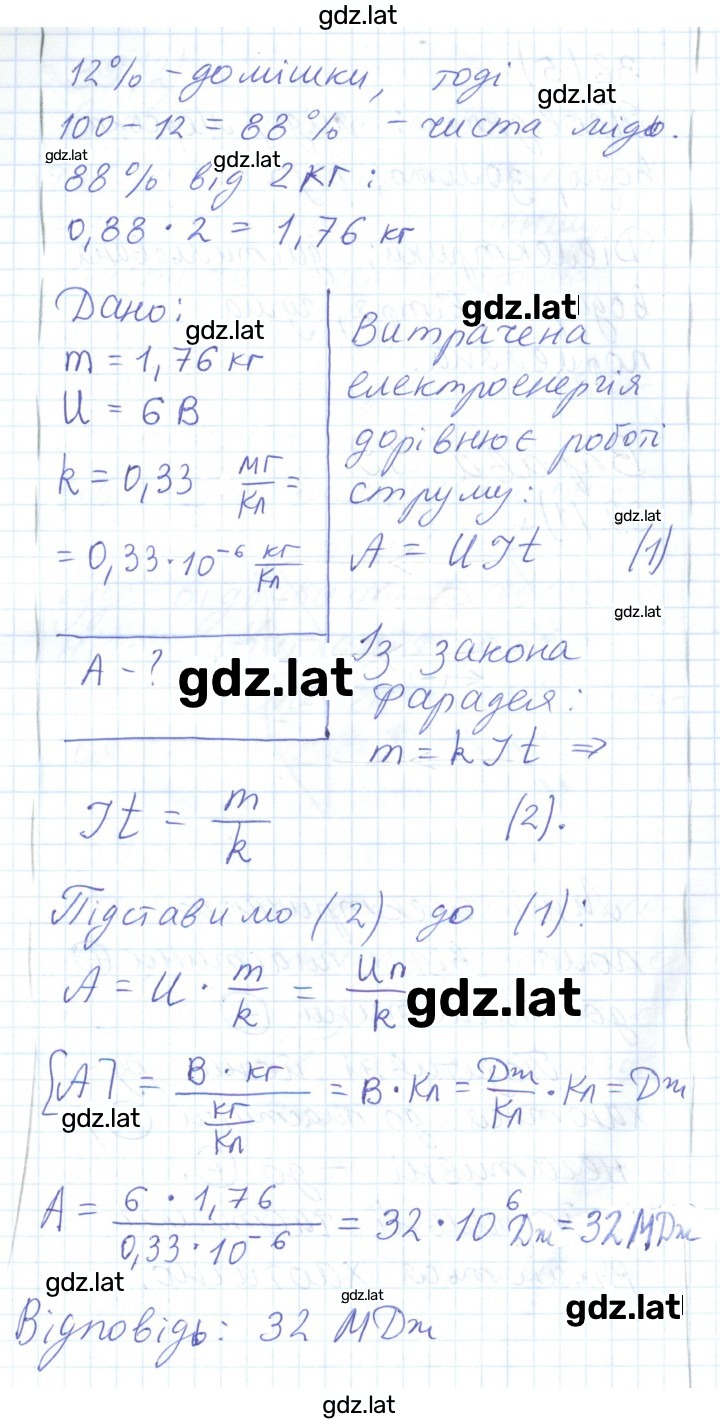 gdz.lat
12% - домішки, тоді
gdz.lat
100 - 12 = 88% - чиста мідь.
gdz.lat gdz.lat
88% від 2 кг:
0,88 · 2 = 1,76 кг
Дано:
gdz.lat
m = 1,76 кг
U = 6 В
k = 0,33 мг/Кл =
= 0,33 · 10⁻⁶ кг/Кл
A - ?
gdz.lat
gdz.lat
Витрачена
електроенергія
дорівнює роботі
струму:
gdz.lat
A = UIt (1)
gdz.lat
Із закона
Фарадея:
m = kIt ⇒
It = m/k (2).
Підставимо (2) до (1):
A = U · m/k = Um/k
gdz.lat
[A] = В · кг / кг/Кл = В · Кл = Дж/Кл · Кл = Дж
gdz.lat
A = 6 · 1,76 / 0,33 · 10⁻⁶ = 32 · 10⁶ Дж = 32 МДж
gdz.lat
gdz.lat
gdz.lat
Відповідь: 32 МДж
gdz.lat